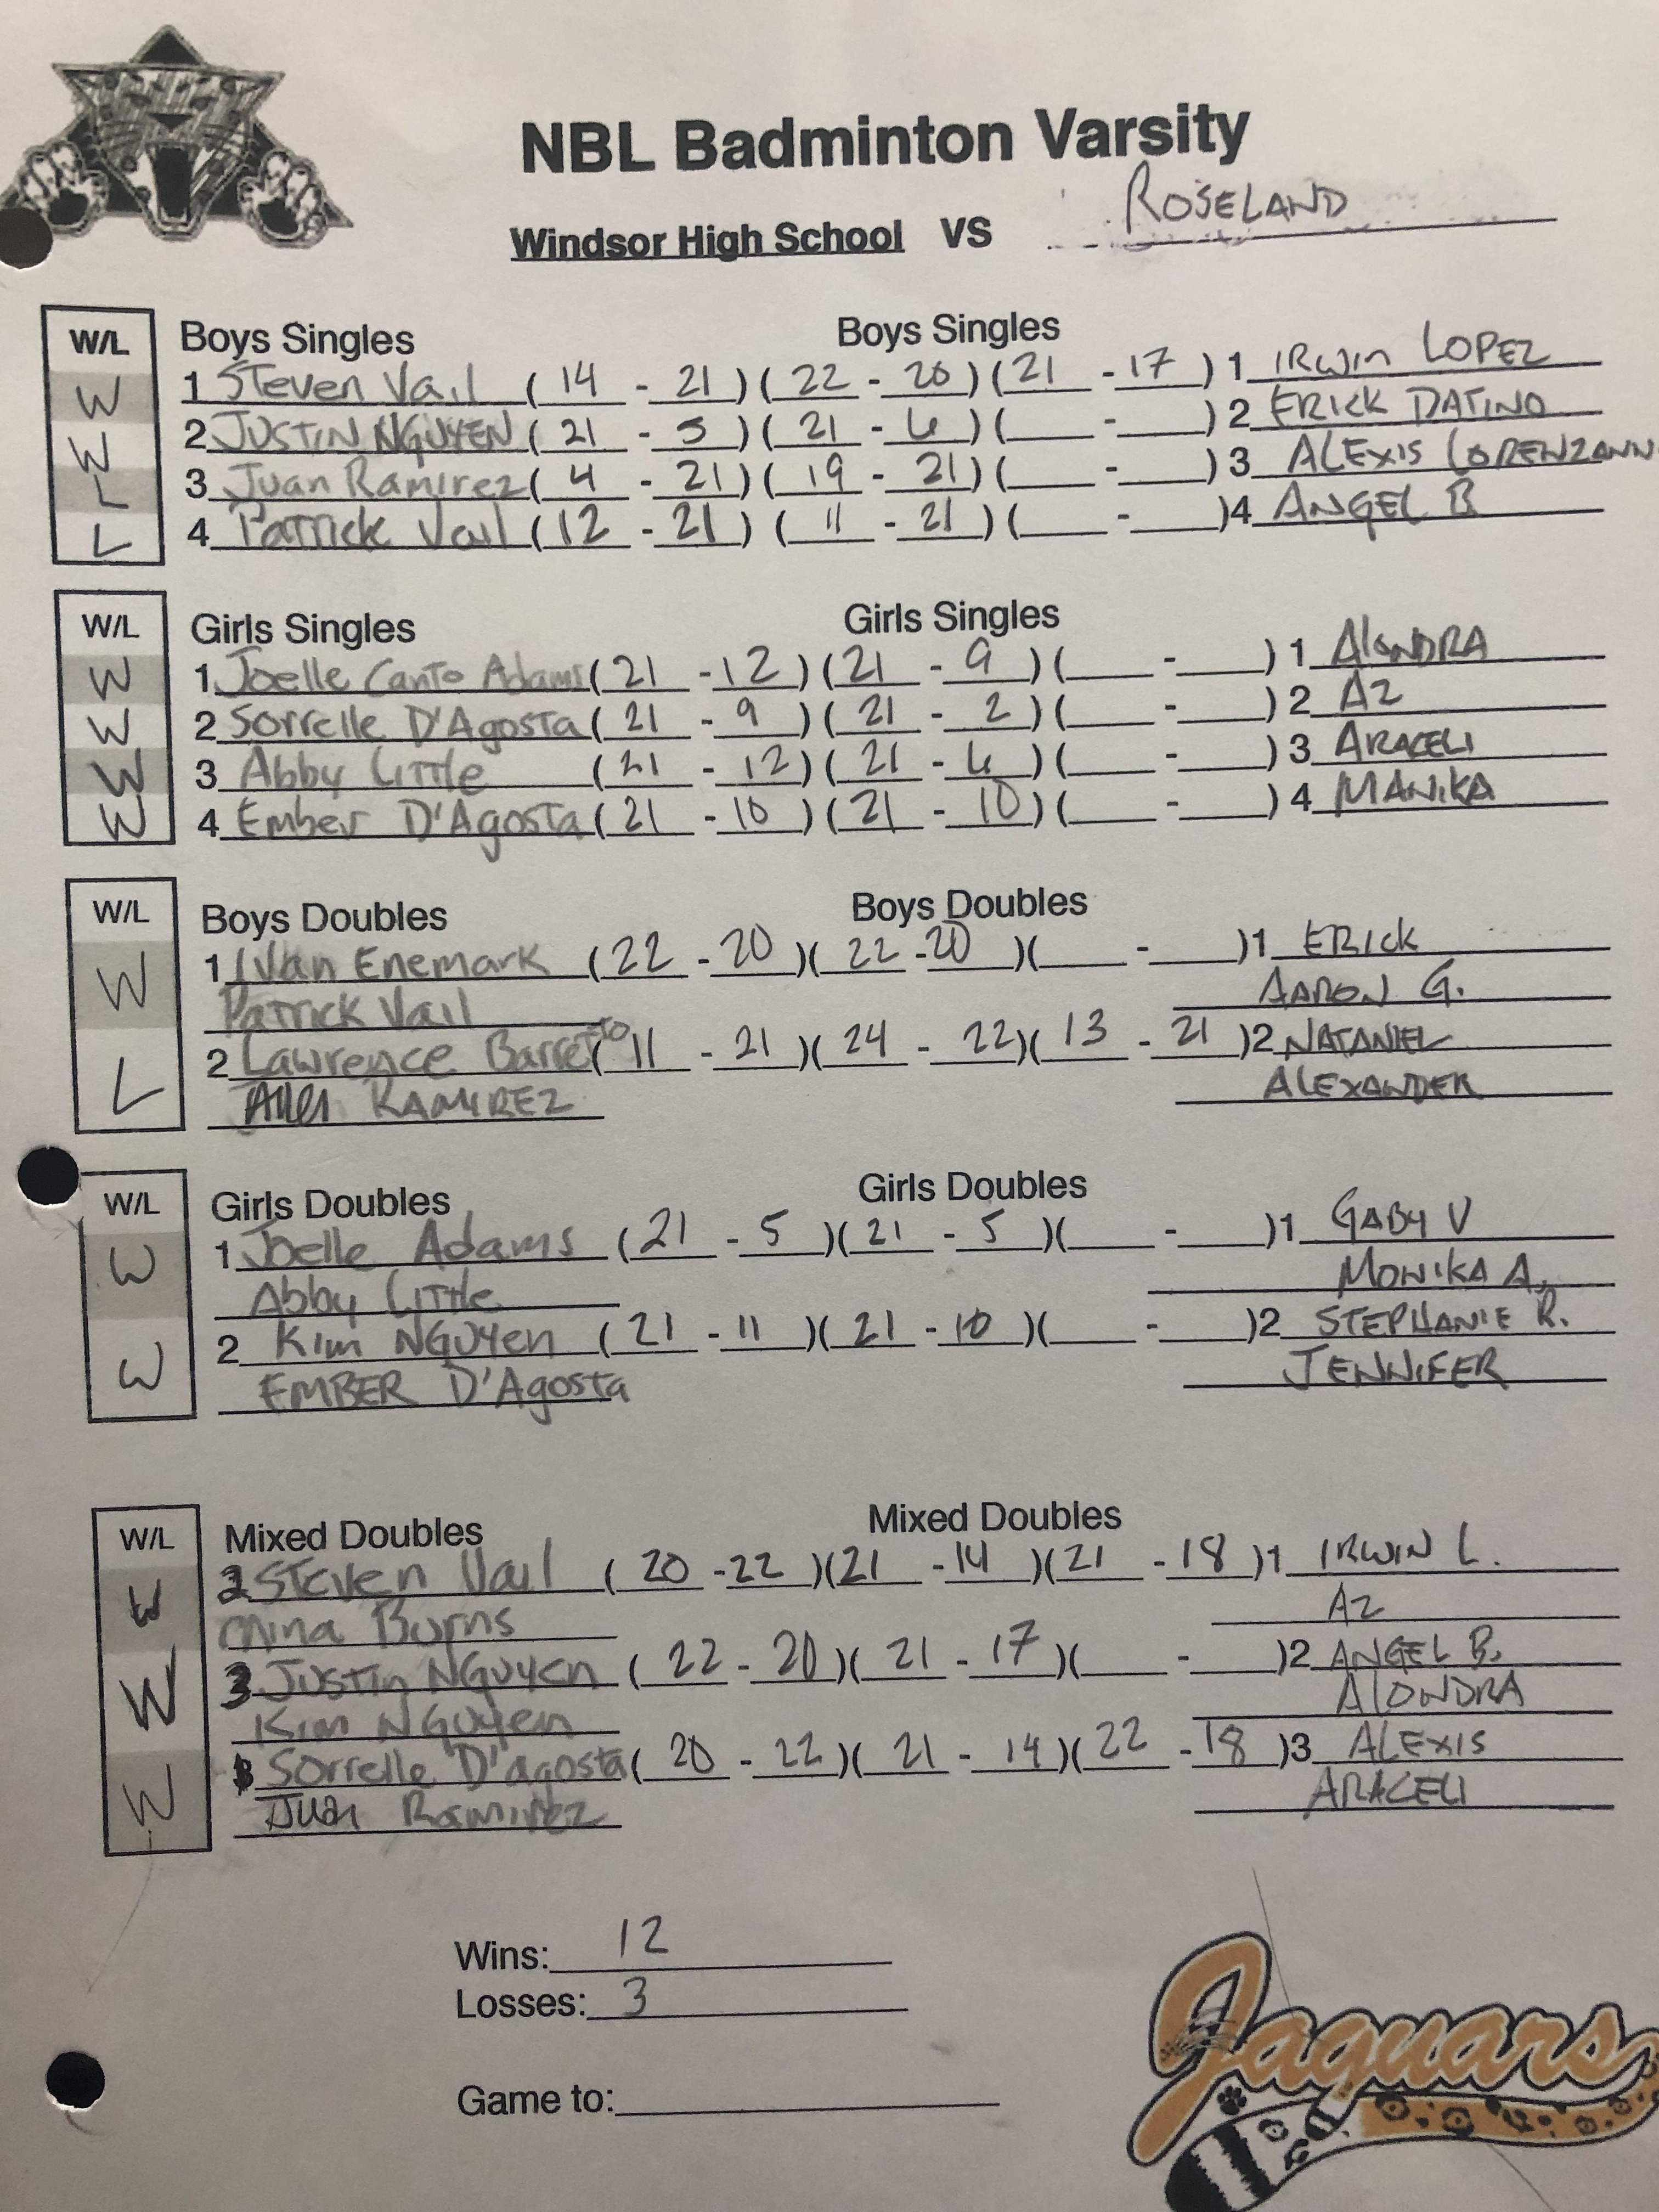 NBL Badminton Varsity
Windsor High School VS ROSELAND
W/L Boys Singles Boys Singles
W 1 Steven Vail ( 14 - 21 ) ( 22 - 20 ) ( 21 - 17 ) 1 IRWIN LOPEZ
W 2 JUSTIN NGUYEN ( 21 - 5 ) ( 21 - 6 ) ( - ) 2 ERICK DATINO
L 3 Juan Ramirez ( 4 - 21 ) ( 19 - 21 ) ( - ) 3 ALEXIS LORENZANN
L 4 Patrick Vail ( 12 - 21 ) ( 11 - 21 ) ( - ) 4 ANGEL B
W/L Girls Singles Girls Singles
W 1 Joelle Canto Adams ( 21 - 12 ) ( 21 - 9 ) ( - ) 1 AlONDRA
W 2 Sorrelle D'Agosta ( 21 - 9 ) ( 21 - 2 ) ( - ) 2 AZ
W 3 Abby Little ( 21 - 12 ) ( 21 - 6 ) ( - ) 3 ARACELI
W 4 Ember D'Agosta ( 21 - 10 ) ( 21 - 10 ) ( - ) 4 MANIKA
W/L Boys Doubles Boys Doubles
W 1 Ivan Enemark ( 22 - 20 ) ( 22 - 20 ) ( - ) 1 ERICK
Patrick Vail AARON G.
L 2 Lawrence Barretto ( 11 - 21 ) ( 24 - 22 ) ( 13 - 21 ) 2 NATANIEL
RAMIREZ ALEXANDER
W/L Girls Doubles Girls Doubles
W 1 Joelle Adams ( 21 - 5 ) ( 21 - 5 ) ( - ) 1 GABY V
Abby Little MONIKA A.
W 2 Kim NGUYen ( 21 - 11 ) ( 21 - 10 ) ( - ) 2 STEPHANIE R.
EMBER D'Agosta JENNIFER
W/L Mixed Doubles Mixed Doubles
W 2 Steven Vail ( 20 - 22 ) ( 21 - 14 ) ( 21 - 18 ) 1 IRWIN L.
Mina Burns AZ
W 3 JUSTIN NGUYEN ( 22 - 20 ) ( 21 - 17 ) ( - ) 2 ANGEL B.
Kim NGUyen AlONDRA
W Sorrelle D'agosta ( 20 - 22 ) ( 21 - 14 ) ( 22 - 18 ) 3 ALEXIS
Juan Ramirez ARACELI
Wins: 12
Losses: 3
Game to:
Jaguars